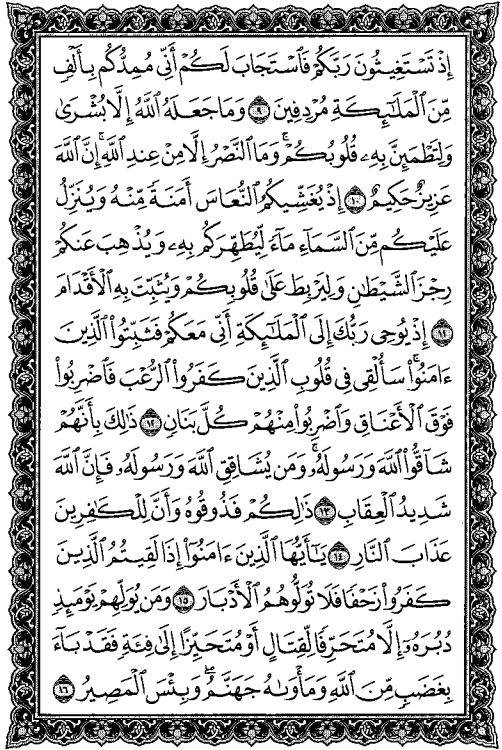 إِذۡ تَسۡتَغِيثُونَ رَبَّكُمۡ فَٱسۡتَجَابَ لَكُمۡ أَنِّي مُمِدُّكُم بِأَلۡفٖ
مِّنَ ٱلۡمَلَٰٓئِكَةِ مُرۡدِفِينَ ٩ وَمَا جَعَلَهُ ٱللَّهُ إِلَّا بُشۡرَىٰ
وَلِتَطۡمَئِنَّ بِهِۦ قُلُوبُكُمۡۚ وَمَا ٱلنَّصۡرُ إِلَّا مِنۡ عِندِ ٱللَّهِۚ إِنَّ ٱللَّهَ
عَزِيزٌ حَكِيمٌ ١٠ إِذۡ يُغَشِّيكُمُ ٱلنُّعَاسَ أَمَنَةٗ مِّنۡهُ وَيُنَزِّلُ
عَلَيۡكُم مِّنَ ٱلسَّمَآءِ مَآءٗ لِّيُطَهِّرَكُم بِهِۦ وَيُذۡهِبَ عَنكُمۡ
رِجۡزَ ٱلشَّيۡطَٰنِ وَلِيَرۡبِطَ عَلَىٰ قُلُوبِكُمۡ وَيُثَبِّتَ بِهِ ٱلۡأَقۡدَامَ
١١ إِذۡ يُوحِي رَبُّكَ إِلَى ٱلۡمَلَٰٓئِكَةِ أَنِّي مَعَكُمۡ فَثَبِّتُواْ ٱلَّذِينَ
ءَامَنُواْۚ سَأُلۡقِي فِي قُلُوبِ ٱلَّذِينَ كَفَرُواْ ٱلرُّعۡبَ فَٱضۡرِبُواْ
فَوۡقَ ٱلۡأَعۡنَاقِ وَٱضۡرِبُواْ مِنۡهُمۡ كُلَّ بَنَانٖ ١٢ ذَٰلِكَ بِأَنَّهُمۡ
شَآقُّواْ ٱللَّهَ وَرَسُولَهُۥۚ وَمَن يُشَاقِقِ ٱللَّهَ وَرَسُولَهُۥ فَإِنَّ ٱللَّهَ
شَدِيدُ ٱلۡعِقَابِ ١٣ ذَٰلِكُمۡ فَذُوقُوهُ وَأَنَّ لِلۡكَٰفِرِينَ
عَذَابَ ٱلنَّارِ ١٤ يَٰٓأَيُّهَا ٱلَّذِينَ ءَامَنُوٓاْ إِذَا لَقِيتُمُ ٱلَّذِينَ
كَفَرُواْ زَحۡفٗا فَلَا تُوَلُّوهُمُ ٱلۡأَدۡبَارَ ١٥ وَمَن يُوَلِّهِمۡ يَوۡمَئِذٖ
دُبُرَهُۥٓ إِلَّا مُتَحَرِّفٗا لِّقِتَالٍ أَوۡ مُتَحَيِّزًا إِلَىٰ فِئَةٖ فَقَدۡ بَآءَ
بِغَضَبٖ مِّنَ ٱللَّهِ وَمَأۡوَىٰهُ جَهَنَّمُۖ وَبِئۡسَ ٱلۡمَصِيرُ ١٦